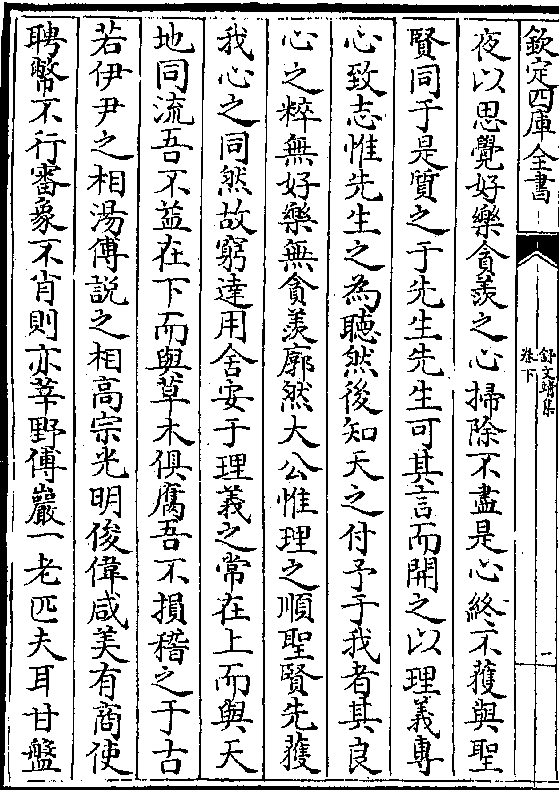 欽定四庫全書
舒文靖集
卷下
一
夜以思覺好樂貪羨之心掃除不盡是心終不獲與聖
賢同于是質之于先生先生可其言而開之以理義專
心致志惟先生之為聽然後知天之付予于我者其良
心之粹無好樂無貪羨廓然大公惟理之順聖賢先獲
我心之同然故窮達用舍安于理義之常在上而與天
地同流吾不益在下而與草木俱腐吾不損稽之于古
若伊尹之相湯傅説之相高宗光明俊偉咸美有商使
聘幣不行審象不肖則亦莘野傅巖一老匹夫耳甘盤